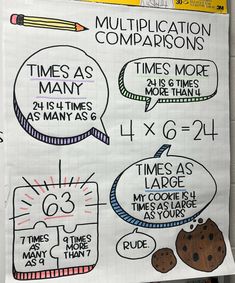 MULTIPLICATION
COMPARISONS
TIMES AS
MANY
24 IS 4 TIMES
AS MANY AS 6
TIMES MORE
24 IS 6 TIMES
MORE THAN 4
4 × 6 = 24
63
7 TIMES
AS
MANY
AS 9
9 TIMES
MORE
THAN 7
TIMES AS
LARGE
MY COOKIE IS 4
TIMES AS LARGE
AS YOURS
RUDE.